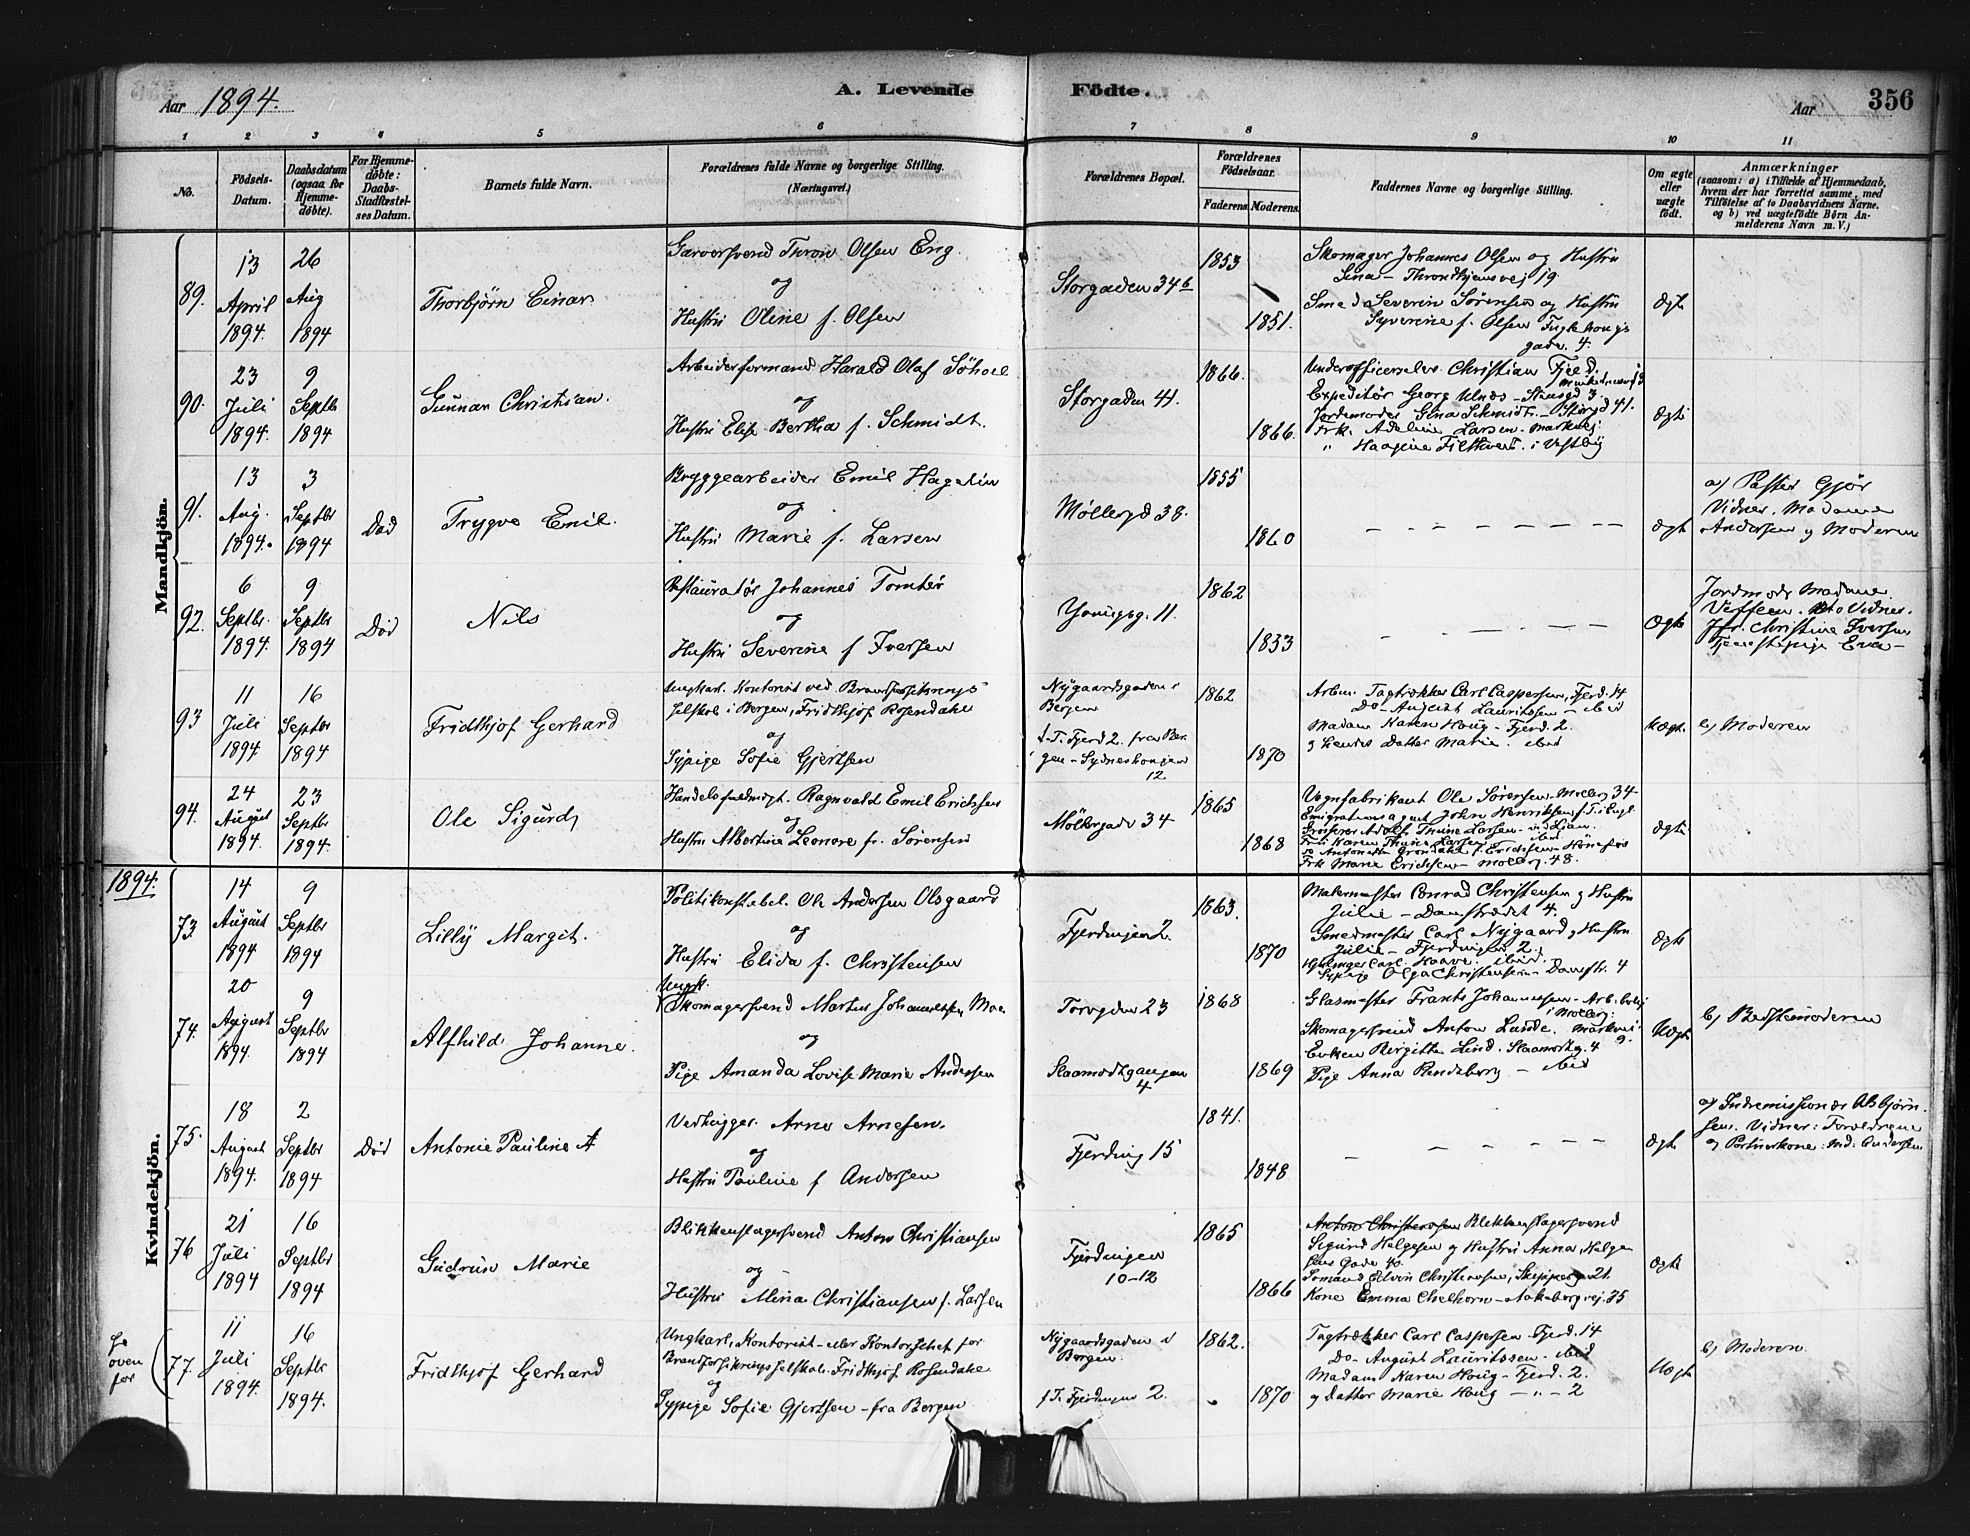 Aar 1894.
A. Levende Födte.
Aar 356
1 2 3 4 5 6 7 8 9 10 11
No.
Födsels-Datum.
Daabsdatum (ogsaa for Hjemme-døbte).
For Hjemme-døbte: Daabs-Stadfæstel-ses Datum.
Barnets fulde Navn.
Forældrenes fulde Navne og borgerlige Stilling. (Næringsvei.)
Forældrenes Bopæl.
Forældrenes Födselsaar.
Faderens. Moderens.
Faddernes Navne og borgerlige Stilling.
Om ægte eller uægte födt.
Anmærkninger
(saasom: a) i Tilfælde af Hjemmedaab,
hvem der har forrettet samme, med
Tilföielse af to Daabsvidners Navne,
og b) ved uægtefödte Börn An-
melderens Navn m. V.)
Mandkjön.
89. 13 April 1894. 26 Aug 1894
Thorbjörn Einar
Garversvend Thron Olsen Eng
og
Hustru Oline f. Olsen
Storgaden 34 b
1853 1851.
Skomager Johannes Olsen og Hustru
Lina - Throndhjemsvej 19
Smed Severin Sørensen og Hustru
Syverine f. Olsen
gade. 4.
Ægte
90. 23 Juli 1894. 9 Septbr 1894
Gunnar Christian.
Arbeiderformand Harald Olaf Söhoel
og
Hustru Elise Bertha f. Schmidt.
Storgaden 41.
1866. 1866.
Underofficerselev Christian Fjeld.
Expeditør Georg Ulnæs - 3
Jordemoder Gina Schmidt - Storgd 41.
Frk. Adeline Larsen - Markvej
" i Vestby
Ægte
91. 13 Aug. 1894. 3 Septbr 1894
Död
Trygve Emil.
Bryggearbeider Emil Hagelin
og
Hustru Marie f. Larsen
Møllergd 38.
1855 1860
Ægt
a) Pastor Gjör
Vidner. Madame
Andersen og Moderen
92. 6 Septbr. 1894. 9 Septbr 1894
Död
Nils
Restauratör Johannes Tomter
og
Hustru Severine f Iversen
Youngsg. 11.
1862 1853
Ægte
Jordmoder Madame
Vidner.
Christine Iversen
Tjenestepige Eva -
93 11 Juli 1894. 16 Septbr 1894
Fridthjof Gerhard
Ungkarl. Kontorist ved Brandforsikrings
selskab i Bergen, Fridthjof Rosendahl
og
Sypige Sofie Gjertsen
Nygaardsgaden i
Bergen
f. T. Fjerd 2. fra Ber
gen - Sydneshaugen
12
1862 1870
Arbm. Tagtrækker Carl Caspersen, Fjerd. 14
Do - August Lauritssen - ibid
Madam Karen Houg - Fjerd. 2.
og hendes Datter Marie. ibid
Uægt.
b) Moderen
94. 24 August 1894. 23 Septbr 1894.
Ole Sigurd
Handelsfuldmægt. Ragnvald Emil Erichsen
og
Hustru Albertine Leonore fr. Sørensen
Möllergade 34
1865 1868
Vognfabrikant Ole Sørensen - Møllerg 34
Emigrationsagent John Henriksen f. T. i Engl.
Grosserer Adolf Thune Larsen - Lian.
Fru Karen Thune Larsen ibid
Do Antonette Grøndahl f. Erichsen - Hönefos
Frk Marie Erichsen - Møllerg 48.
Ægte
1894.
Kvindekjön.
73. 14 August 1894 9 Septbr 1894
Lilly Margit.
Politikonstabel. Ole Andersen Olsgaard
og
Hustru Elida f. Christensen
Fjerdingen 2.
1863. 1870
Malermester Conrad Christensen og Hustru
Julie - Damstrædet 4.
Smedmester Carl Nygaard og Hustru
Julie - Fjerdingen 2.
Carl Haave. ibid.
Sypige Olga Christensen - Damstr. 4
Ægte
74. 20 August 1894. 9 Septbr 1894
Alfhild Johanne.
Ungk.
Skomagersvend Martin Johannessen Moe
og
Pige Amanda Lovise Marie Andersen
Torvgaden 23
Slaamodtgangen
4
1868 1869
Glasmester Frants Johannesen - Arb. bolig
i Møllerg.
Skomagersvend Anton Lunde. Markvei
9.
Enken Birgitte Lind. Slaamodtg. 4
Pige Anna Randeberg - ibid
Uægte
b) Bedstemoderen
75. 18 August 1894. 2 Septbr 1894
Död
Antonie Pauline A
Vedhugger. Arne Arnesen.
og
Hustru Pauline f Andersen
Fjerding 15
1841. 1848
Ægte
a) Indremissionær Asbjørn
sen. Vidner: Forældrene
og Portnerkone: Andersen
76 21 Juli 1894 16 Septbr 1894
Gudrun Marie
Blikkenslagersvend Anton Christiansen
og
Hustru Mina Christiansen f. Larsen
Fjerdingen
10-12
1865 1866
Anton Christensen Blikkenslagersvend
Sigurd Helgesen og Hustru Anna, Helge
sens Gade 40
Sømand Edvin Christensen, Skipperg 21.
Kone Emma Chelhorn - Aakebergvej. 35
Ægte
Se oven for
77. 11 Juli 1894. 16 Septbr 1894.
Fridthjof Gerhard
Ungkarl. Kontorist - eller Kontorchef for
Brandforsikringsselskab. Fridthjof Rosendahl
og
Sypige Sofie Gjertsen - fra Bergen
Nygaardsgaden i
Bergen.
f. T. Fjerdingen 2.
1862. 1870
Tagtrækker Carl Caspersen Fjerd. 14
Do - August Lauritssen - ibid
Madam Karen Houg - Fjerd. 2.
og Datter Marie Houg - " - 2
Uægte
b) Moderen.